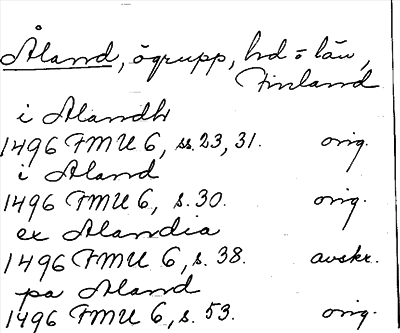 Åland, ögrupp, hd o län,
Finland
i Alandh
1496 FMU 6, ss. 23, 31. orig.
i Aland
1496 FMU 6, s. 30. orig.
ex Alandia
1496 FMU 6, s. 38. avskr.
pa Aland
1496 FMU 6, s. 53. orig.